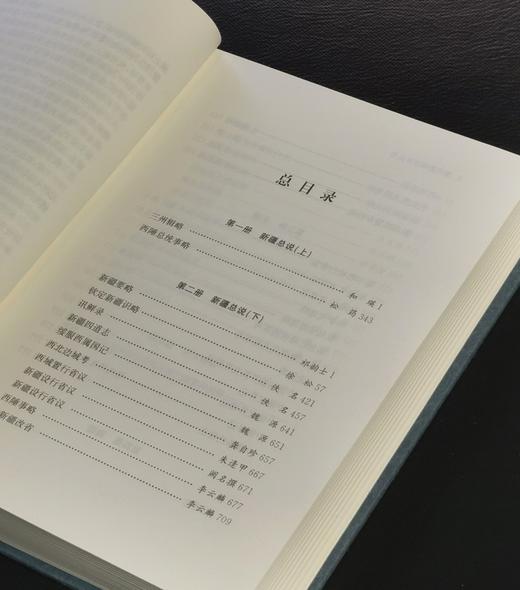 总目录
第一册 新疆总说(上)
三州辑略 和瑛 1
西陲总统事略 松筠 343
第二册 新疆总说(下)
新疆要略 祁韵士 1
钦定新疆识略 徐松 57
讯鲜录 佚名 421
新疆四道志 佚名 457
绥服西属国记 魏源 641
西北边域考 魏源 651
西域置行省议 龚自珍 657
新疆设行省议 朱逢甲 667
新疆设行省议 阙名撰 671
西陲事略 李云麟 677
新疆改省 李云麟 709